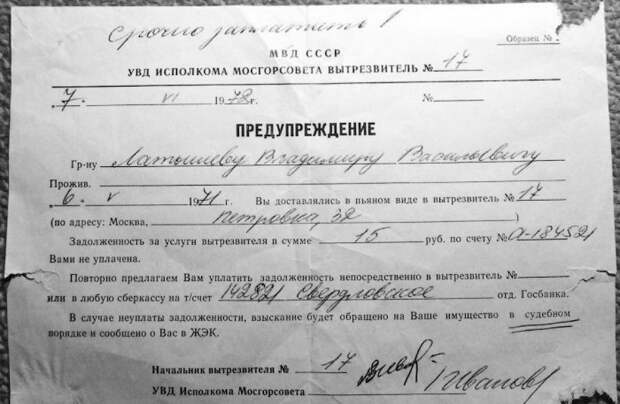 Срочно заплатить!
Образец №
МВД СССР
УВД ИСПОЛКОМА МОСГОРСОВЕТА ВЫТРЕЗВИТЕЛЬ № 17
7. VI 1972г. №
ПРЕДУПРЕЖДЕНИЕ
Гр-ну Латышеву Владимиру Васильевичу
Прожив.
6. V 1971 г. Вы доставлялись в пьяном виде в вытрезвитель № 17
(по адресу: Москва, Петровка, 38)
Задолженность за услуги вытрезвителя в сумме 15 руб. по счету № А-184521
Вами не уплачена.
Повторно предлагаем Вам уплатить задолженность непосредственно в вытрезвитель №
или в любую сберкассу на т/счет 142521 Свердловское отд. Госбанка.
В случае неуплаты задолженности, взыскание будет обращено на Ваше имущество в судебном
порядке и сообщено о Вас в ЖЭК.
Начальник вытрезвителя № 17
УВД Исполкома Мосгорсовета Иванов